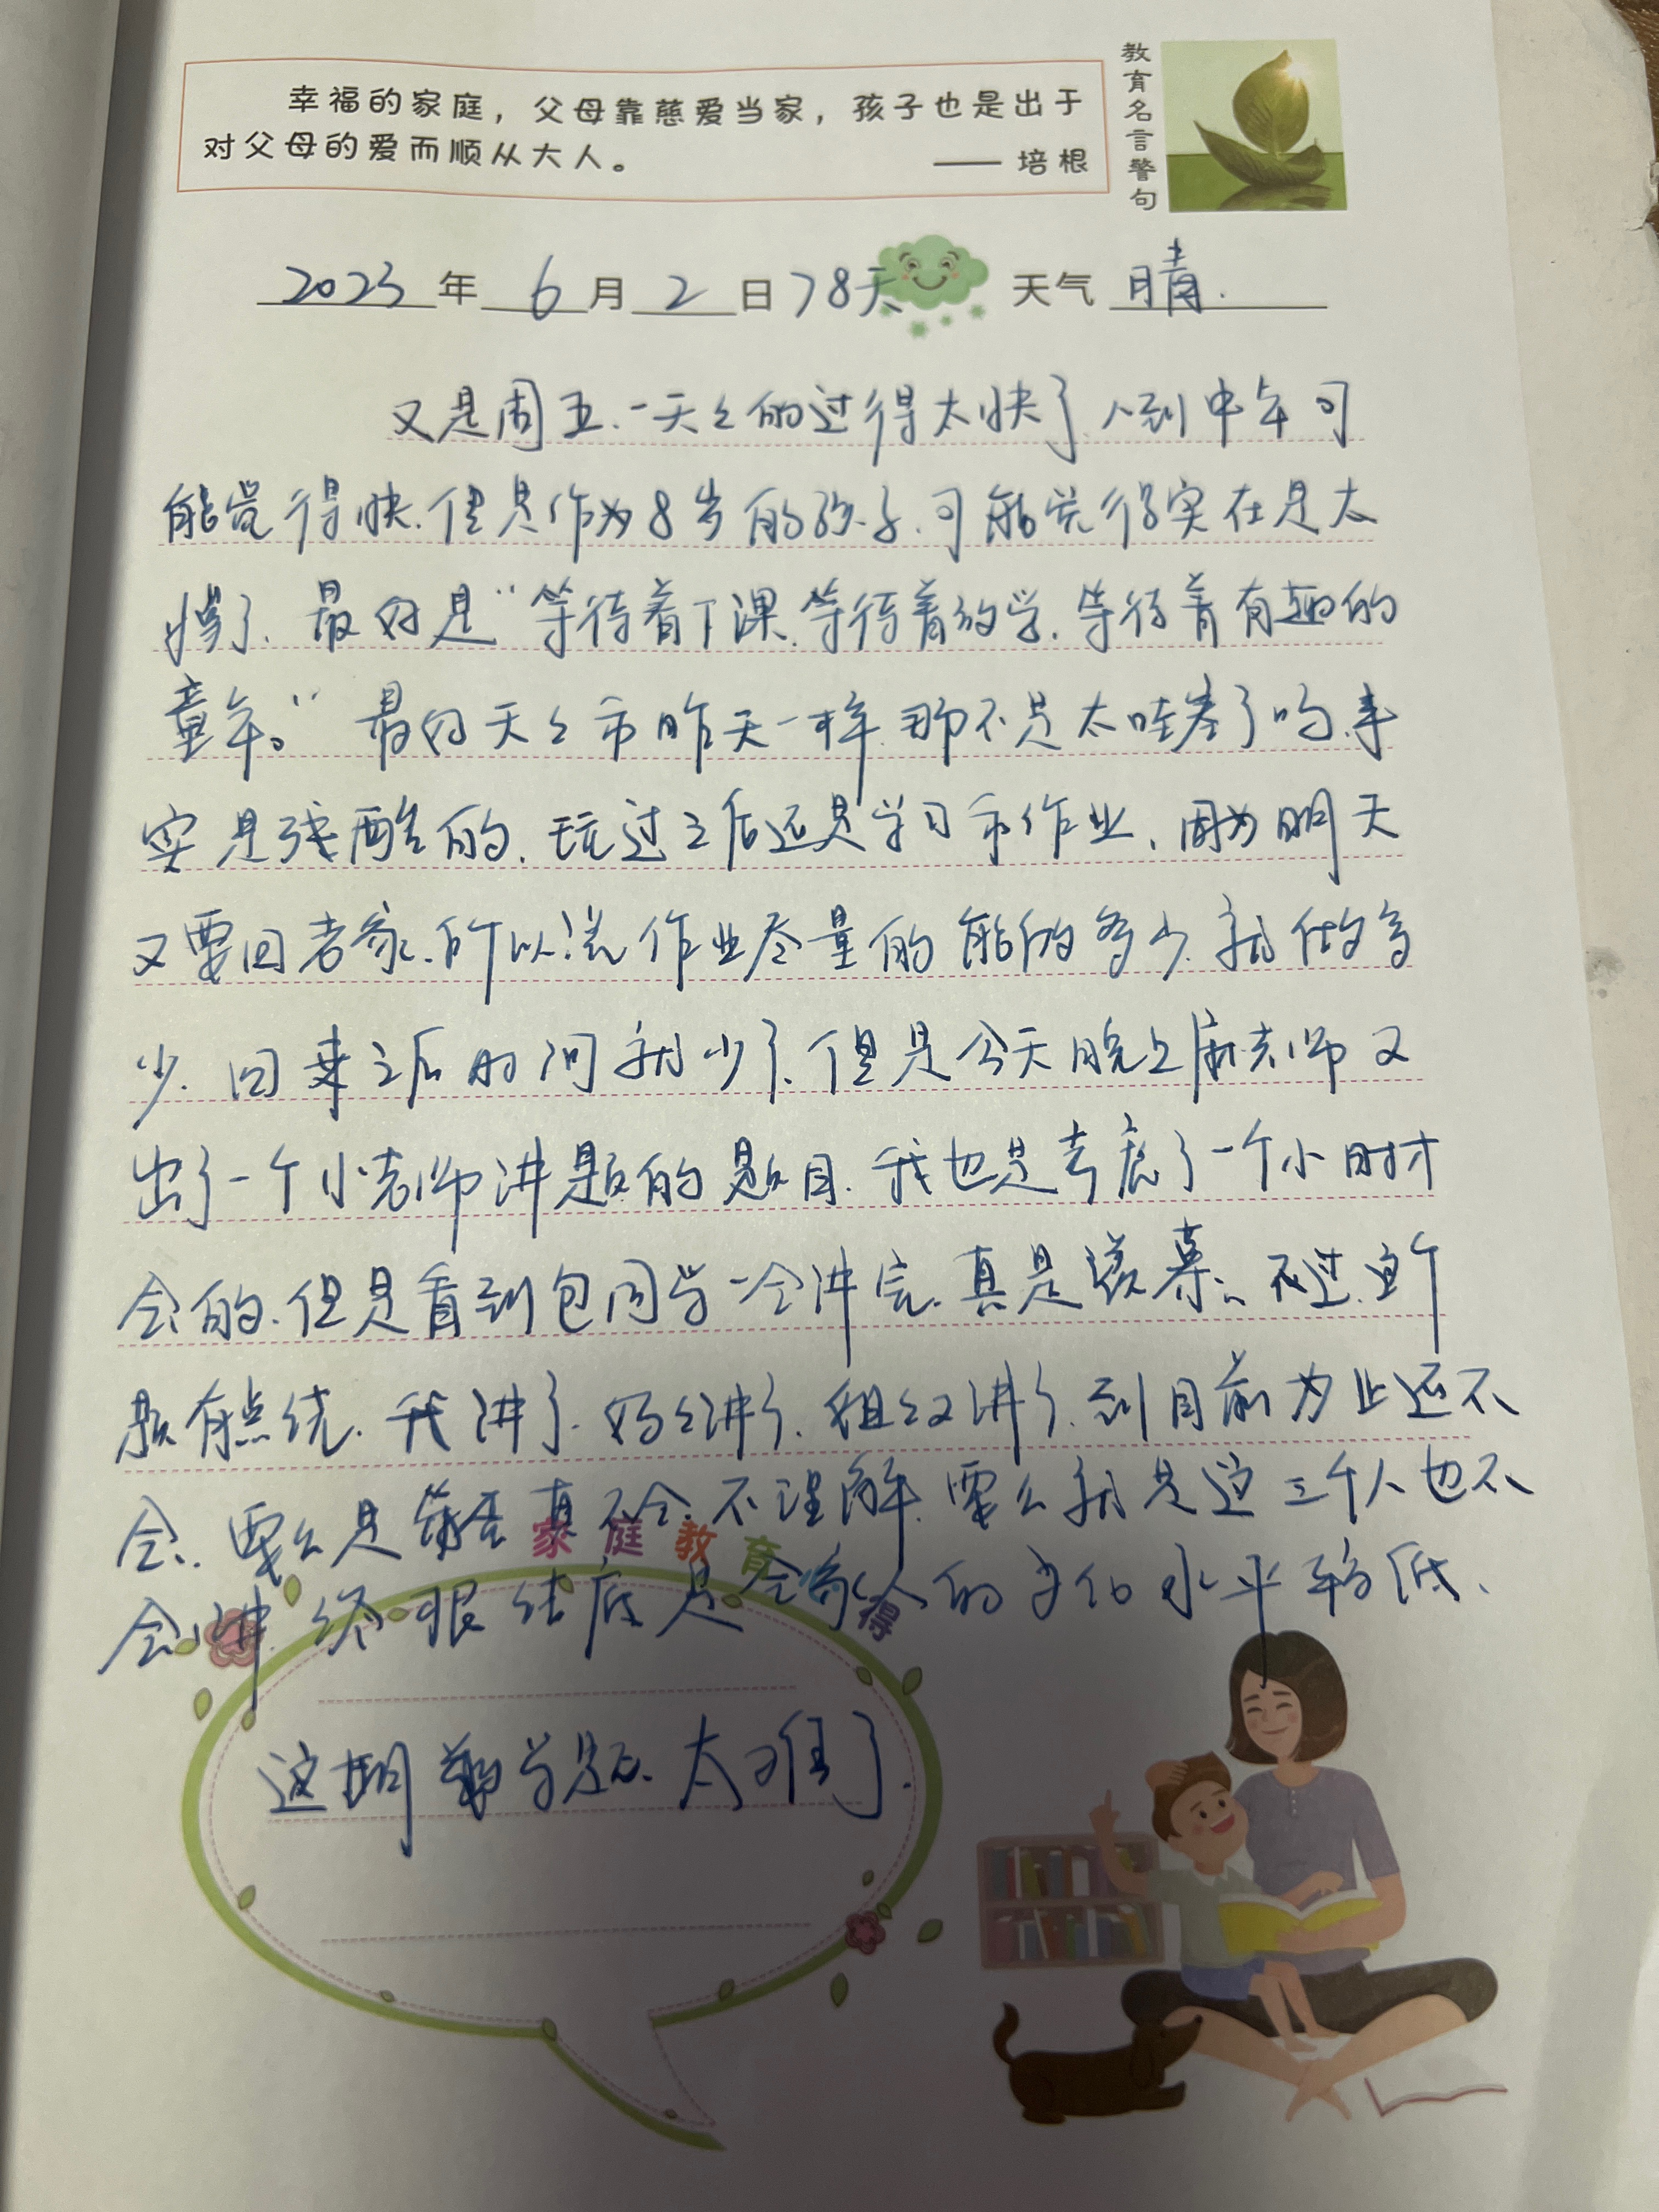 幸福的家庭，父母靠慈爱当家，孩子也是出于
对父母的爱而顺从大人。
—— 培根
教育名言警句
2023年6月2日78天 天气 晴.
又是周五.一天天的过得太快了.人到中年可
能觉得快.但是作为8岁的孩子.可能觉得实在是太
慢了.最好是“等待着下课.等待着放学.等待着有趣的
童年。”最好天天而昨天一样.那不是太哇塞了吗.事
实是残酷的.玩过之后还是学习和作业.因为明天
又要回老家.所以说作业尽量的能做多少就做多
少.回来之后的问就少了.但是今天晚上麻老师又
出了一个小老师讲题的题目.我也是考虑了一个小时才
会的.但是看到包同学一会讲完.真是羡慕。不过.这个
题有点绕.我讲了.妈妈讲了.姐姐又讲了.到目前为止还不
会.要么是真不会.不理解.要么就是这三个人也不
会讲.终根结底是全家人的文化水平较低.
家庭教育心得
这期数学题.太难了.